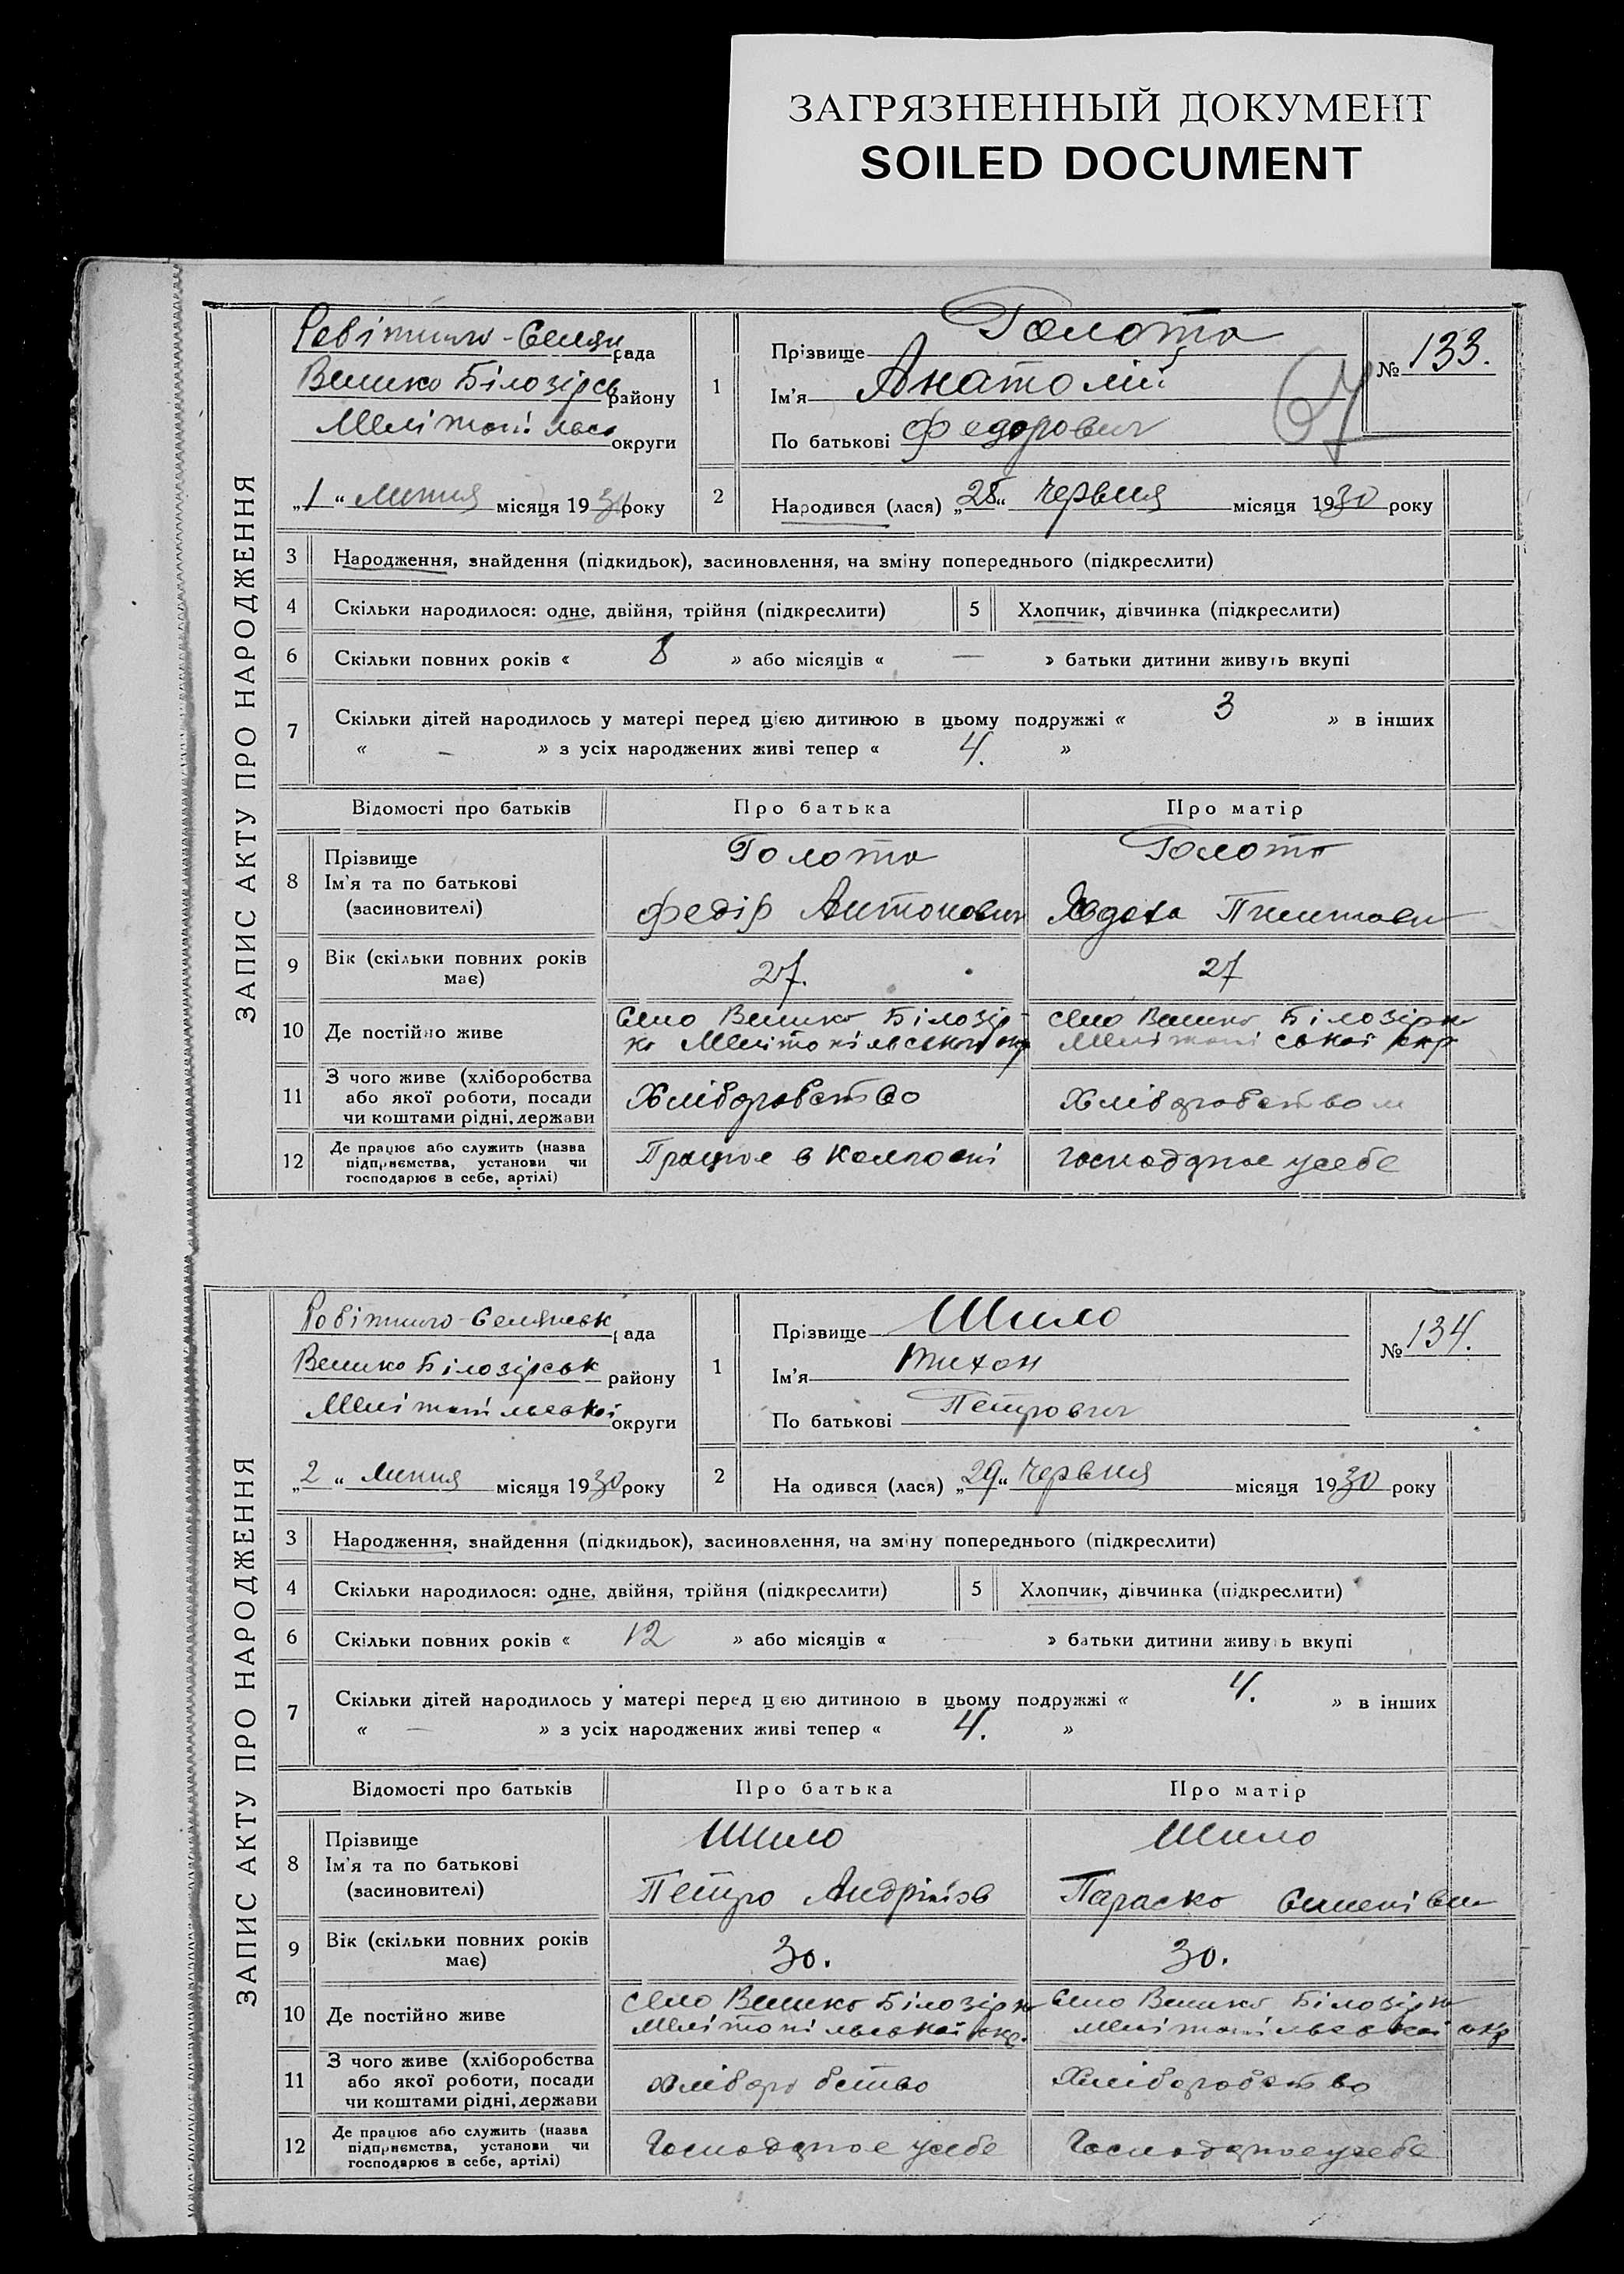 ЗАГРЯЗНЕННЫЙ ДОКУМЕНТ
SOILED DOCUMENT
ЗАПИС АКТУ ПРО НАРОДЖЕННЯ
рада
Велико Білозірсь району
округи
„1“ липня місяця 1930 року
1
Прізвище Голота
Ім'я Анатолій
По батькові Федорович
№ 133.
2 Народився (лася) „28“ червня місяця 1930 року
3 Народження, знайдення (підкидьок), засиновлення, на зміну попереднього (підкреслити)
4 Скільки народилося: одне, двійня, трійня (підкреслити) 5 Хлопчик, дівчинка (підкреслити)
6 Скільки повних років « 8 » або місяців « — » батьки дитини живуть вкупі
7 Скільки дітей народилось у матері перед цією дитиною в цьому подружжі « 3 » в інших
« – » з усіх народжених живі тепер « 4. »
Відомості про батьків Про батька Про матір
8 Прізвище Голота Голота
Ім'я та по батькові
(засновителі) Федір Антонович Явдоха
9 Вік (скільки повних років має) 27. 27
10 Де постійно живе Село Велико Білозір- село Велико Білозірка
ка Мелітопільської окр
11 З чого живе (хліборобства
або якої роботи, посади
чи коштами рідні, держави Хліборобство Хліборобством
12 Де працює або служить (назва
підприємства, установи чи
господарює в себе, артілі) Працює в колгоспі господарює усебе
ЗАПИС АКТУ ПРО НАРОДЖЕННЯ
рада
Велико Білозірськ району
Мелітопільської округи
„2“ липня місяця 1930 року
1
Прізвище Шило
Ім'я Тихон
По батькові Петрович
№ 134.
2 На одився (лася) „29“ червня місяця 1930 року
3 Народження, знайдення (підкидьок), засиновлення, на зміну попереднього (підкреслити)
4 Скільки народилося: одне, двійня, трійня (підкреслити) 5 Хлопчик, дівчинка (підкреслити)
6 Скільки повних років « 12 » або місяців « — » батьки дитини живу ь вкупі
7 Скільки дітей народилось у матері перед цією дитиною в цьому подружжі « 4. » в інших
« — » з усіх народжених живі тепер « 4. »
Відомості про батьків Про батька Про матір
8 Прізвище Шило Шило
Ім'я та по батькові
(засиновителі) Петро Параска
9 Вік (скільки повних років має) 30. 30.
10 Де постійно живе село Велико Білозірк Село Велико Білозірк
Мелітопільської окр. Мелітопільської окр
11 З чого живе (хліборобства
або якої роботи, посади
чи коштами рідні, держави хліборобство Хліборобство
12 Де працює або служить (назва
підприємства, установи чи
господарює в себе, артілі) Господарює усебе Господарює усебе